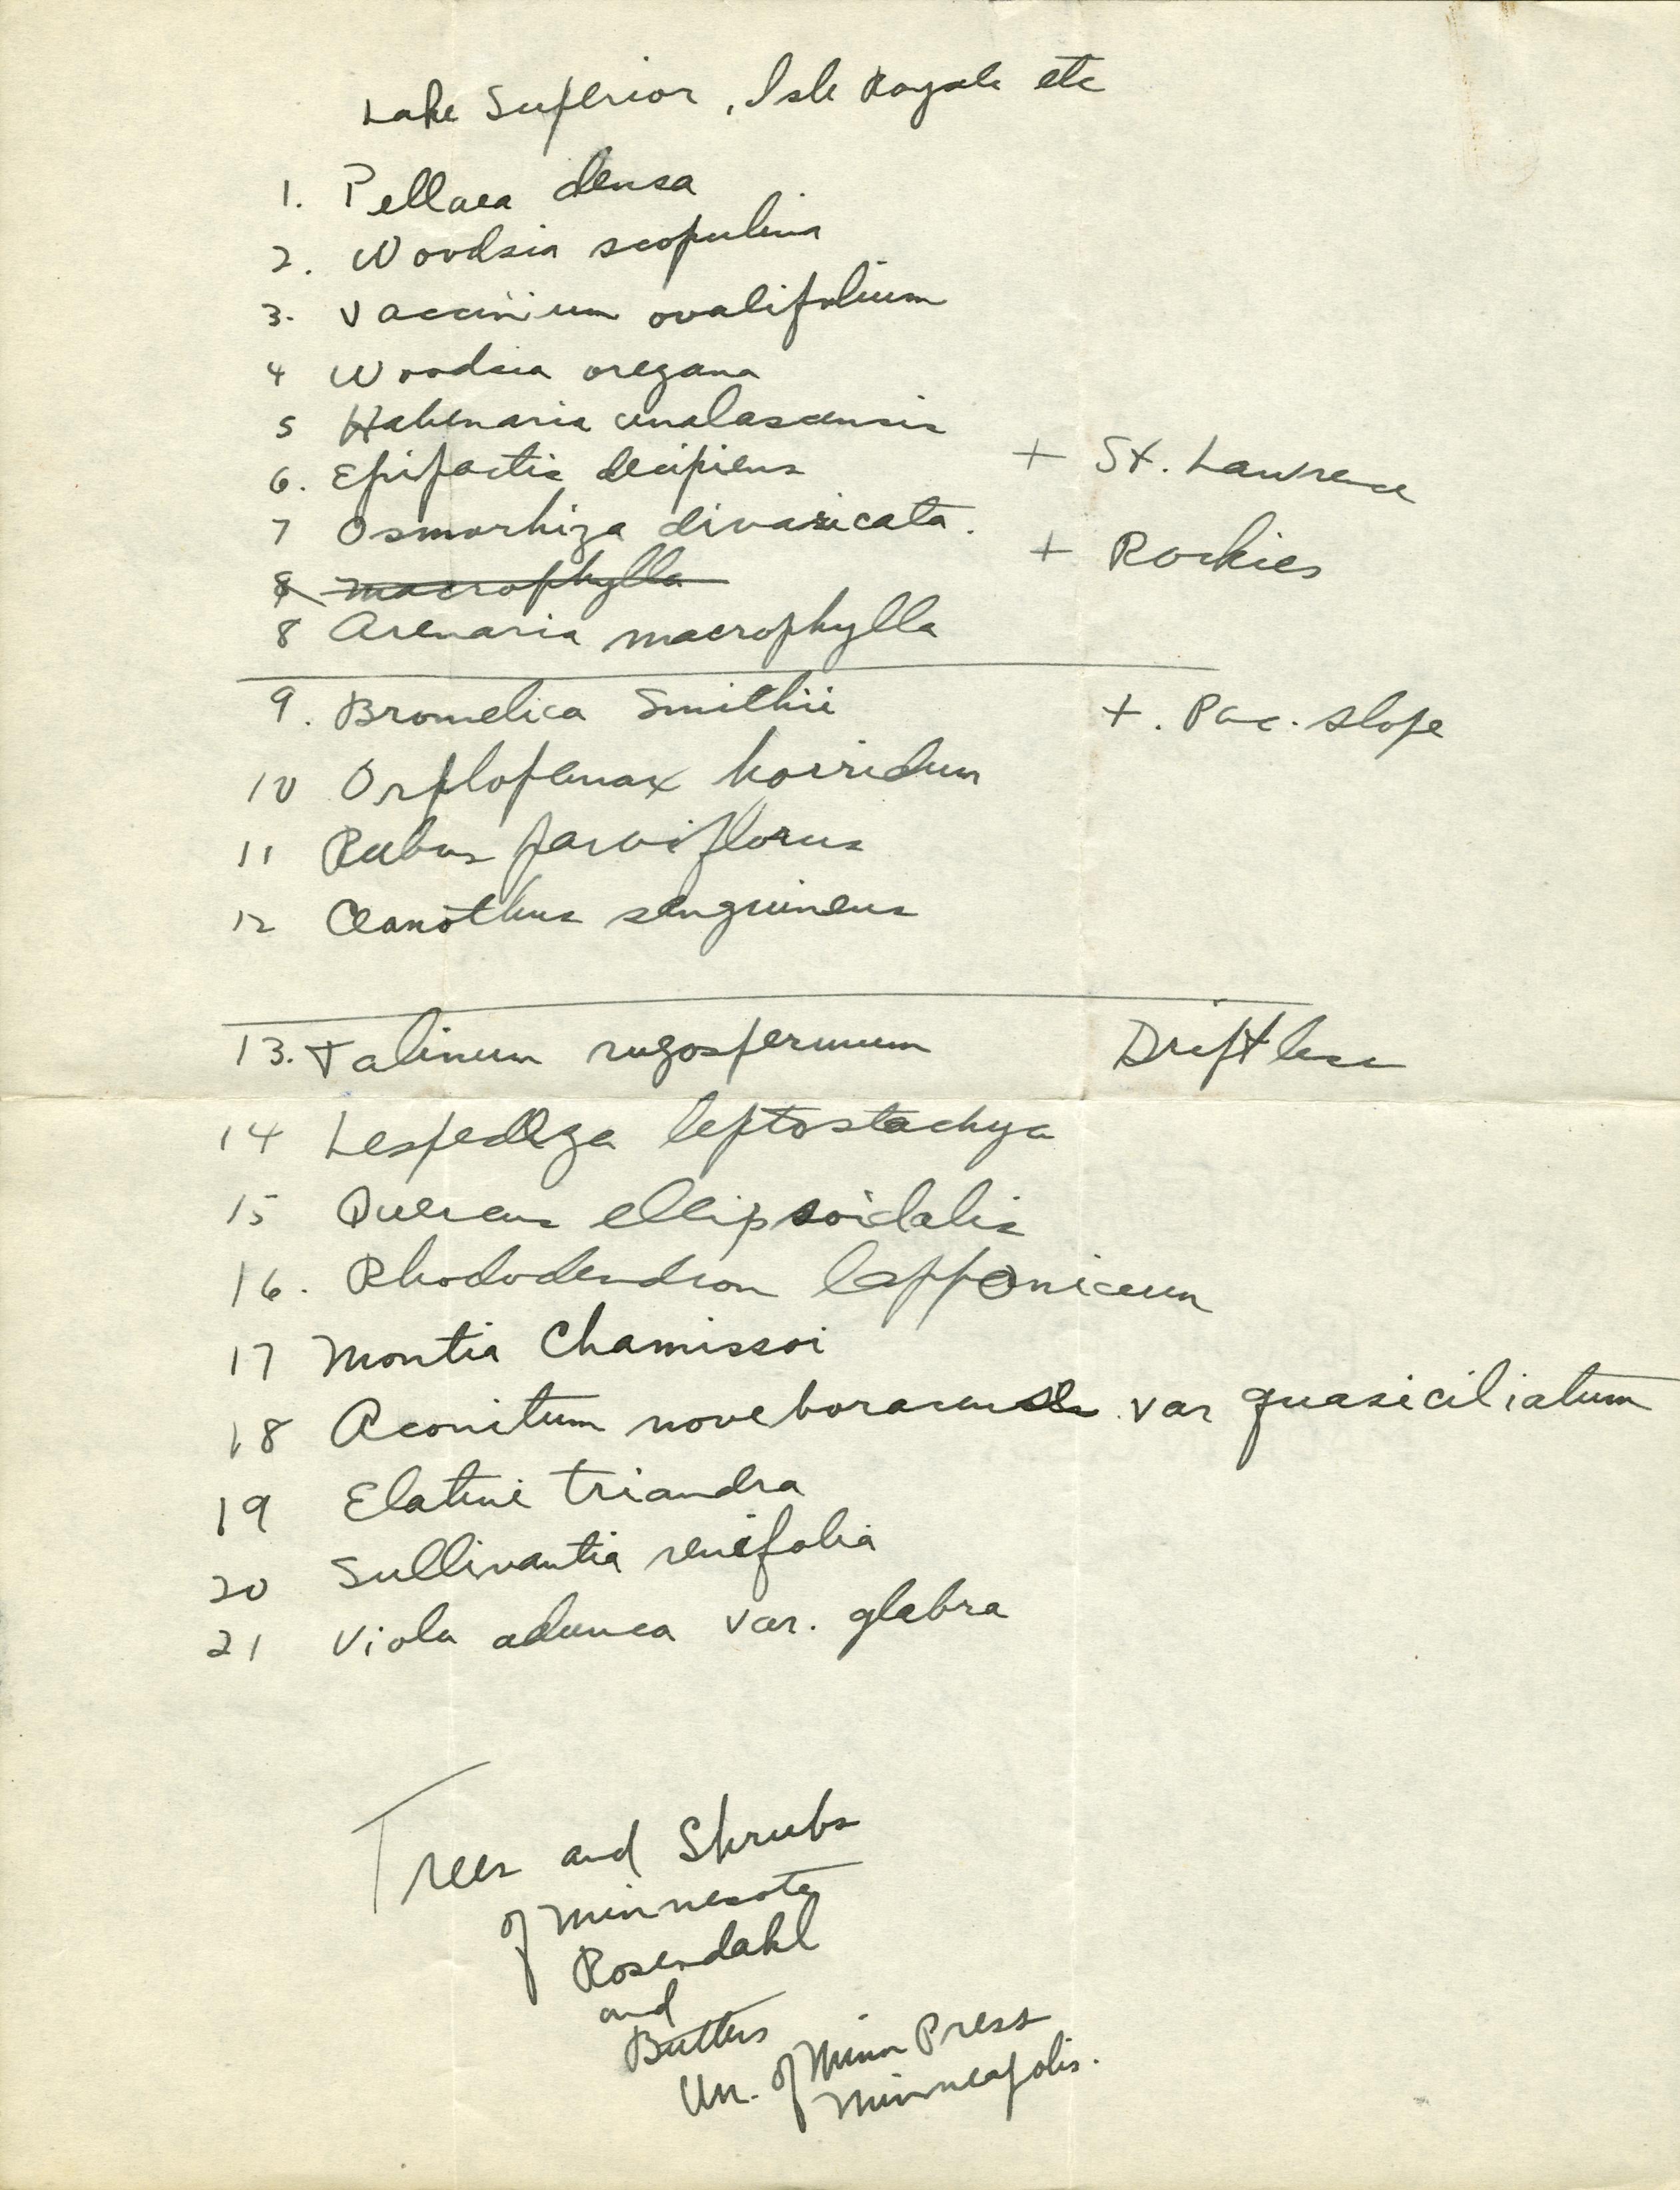 Lake Superior, Isle Royale etc
1. Pellaea densa
2. Woodsia scopulina
3. Vaccinium ovalifolium
4 Woodsia oregana
5 Habenaria unalascensis
+ St. Lawrence
6. Epipactis decipiens
7 Osmorhiza divaricata.
+ Rockies
8 macrophylla
8 Arenaria macrophylla
9. Bromelica Smithii
+. Pac. slope
10 Orplopanax horridum
11 Rubus parviflorus
12 Ceanothus sanguineus
13. Talinum rugospermum
Driftless
14 Lespedeza leptostachya
15 Quercus ellipsoidalis
16. Rhododendron lapponicum
17 Montia Chamissoi
18 Aconitum noveboracense var quasiciliatum
19 Elatine triandra
20 Sullivantia renifolia
21 Viola adunca var. glabra
Trees and Shrubs
of Minnesota
Rosendahl
and
Butters
Un. of Minn Press
Minneapolis.